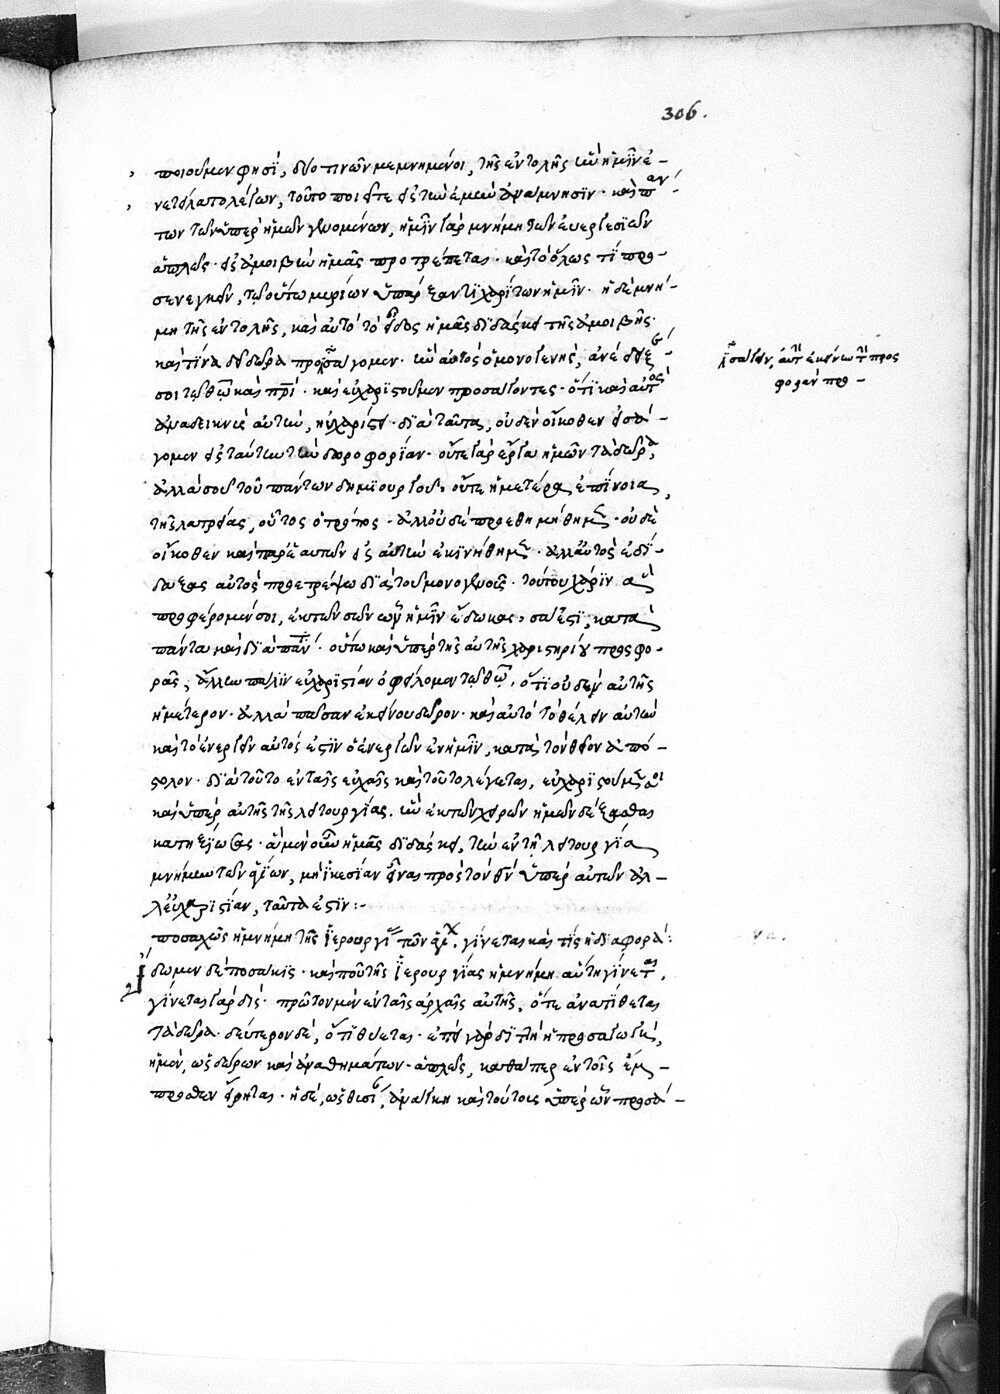 306.
ποιοῦμεν φησὶ, δύο τινῶν μεμνημένοι, τῆς ἐντολῆς ἣν ἡμῖν ἐ-
νετείλατο λέγων, τοῦτο ποιεῖτε εἰς τὴν ἐμὴν ἀνάμνησιν· καὶ πάν-
των τῶν ὑπὲρ ἡμῶν γενομένων, ἡμῖν γὰρ μνήμη τῶν εὐεργεσιῶν
ἁπλῶς· εἰς ἀμοιβὴν ἡμᾶς προτρέπεται· καὶ τὸ ὅλως τί προ-
σενεγκεῖν, τῷ οὕτω μυρίων ὑπάρξαντι χαρίτων ἡμῖν· ἡ δὲ μνή-
μη τῆς ἐντολῆς, καὶ αὐτὸ τὸ εἶδος ἡμᾶς διδάσκει τῆς ἀμοιβῆς·
καὶ τίνα δεῖ δῶρα προσάγομεν· ἣν αὐτὸς ὁ μονογενὴς, ἀνέδειξέ
σοι τῷ θῶ καὶ πρί· καὶ εὐχαριστοῦμεν προσάγοντες· ὅτι καὶ αὐτὸς
ἀναδεικνὺς αὐτὴν, ηὐχαρίστει· διὰ ταῦτα, οὐδὲν οἴκοθεν εἰσά-
γομεν εἰς ταύτην τὴν δωροφορίαν· οὔτε γὰρ ἔργα ἡμῶν τὰ δῶρα,
ἀλλὰ σοῦ τοῦ πάντων δημιουργοῦ· οὔτε ἡμετέρας ἐπίνοια,
τῆς λατρείας, οὗτος ὁ τρόπος· ἀλλ' οὐδὲ προεθυμήθημεν· οὐδὲ
οἴκοθεν καὶ παρ' ἑαυτῶν εἰς αὐτὴν ἐκινήθημεν· ἀλλ' αὐτὸς ἐδί-
δαξας αὐτὸς προετρέψω διὰ τοῦ μονογενοῦς· τούτου χάριν ἃ
προσφέρομέν σοι, ἐκ τῶν σῶν ὧν ἡμῖν ἔδωκας, σά ἐστι, κατὰ
πάντα καὶ διὰ πάντ· οὕτω καὶ ὑπὲρ τῆς αὐτῆς χαριστηρίου προσφο-
ρᾶς, ἄλλην πάλιν εὐχαριστίαν ὀφείλομεν τῷ θῶ, ὅτι οὐδὲν αὐτῆς
ἡμέτερον· ἀλλὰ πᾶσαν ἐκείνου δῶρον· καὶ αὐτὸ τὸ θέλειν αὐτὴν
καὶ τὸ ἐνεργεῖν αὐτός ἐστιν ὁ ἐνεργῶν ἐν ἡμῖν, κατὰ τὸν θεῖον ἀπό-
στολον· διὰ τοῦτο ἐν ταῖς εὐχαῖς καὶ τοῦτο λέγεται, εὐχαριστοῦμέν σοι
καὶ ὑπὲρ αὐτῆς τῆς λειτουργίας. ἣν ἐκ τῶν χειρῶν ἡμῶν δέξασθαι
κατηξίωσας· ἃ μὲν οὖν ἡμᾶς διδάσκει, τὴν ἐν τῇ λειτουργίᾳ
μνήμην τῶν ἁγίων, μὴ ἱκεσίαν εἶναι πρὸς τὸν θν ὑπὲρ αὐτῶν ἀλ-
λ' εὐχαριστίαν, ταῦτά ἐστιν:-
ποσαχῶς ἡ μνήμη τῆς ἱερουργίας τῶν, γίνεται καὶ τίς ἡ διαφορά:
ἴδωμεν δὲ ποσάκις· καὶ ποῦ τῆς ἱερουργίας ἡ μνήμη αὕτη γίνεται.
γίνεται γὰρ δὶς· πρῶτον μὲν ἐν ταῖς ἀρχαῖς αὐτῆς, ὅτε ἀνατίθεται
τὰ δῶρα· δεύτερον δὲ, ὅτι θύεται· ἐπεὶ γὰρ διπλῆ ἡ προσαγωγὴ,
ἡ μὲν, ὡς δώρων καὶ ἀναθημάτων· ἁπλῶς, καθάπερ ἐν τοῖς ἔμ-
προσθεν εἴρηται· ἡ δὲ, ὡς θυσία, ἀνάγκη καὶ τούτοις ὑπὲρ ὧν προσά-